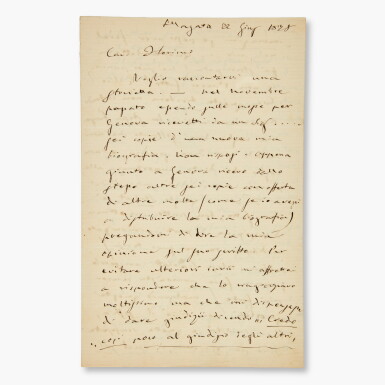 S. Agata 22 Giug 1888
Caro Florimo
Voglio raccontarvi una
storiella. — Nel novembre
passato essendo sulle mosse per
Genova ricevetti da un Sig
sei copie d'una nuova mia
biografia. Non risposi. Appena
giunto a Genova ricevo dallo
stesso altre sei copie con offerta
di altre molte (come se io avessi
a distribuire la mia biografia)
pregandomi di dire la mia
opinione sul suo scritto. Per
evitare ulteriori invii mi affrettai
a rispondere che lo ringraziavo
moltissimo ma che mi dispensasse
di dare giudizi dicendo
poco al giudizio degli altri,